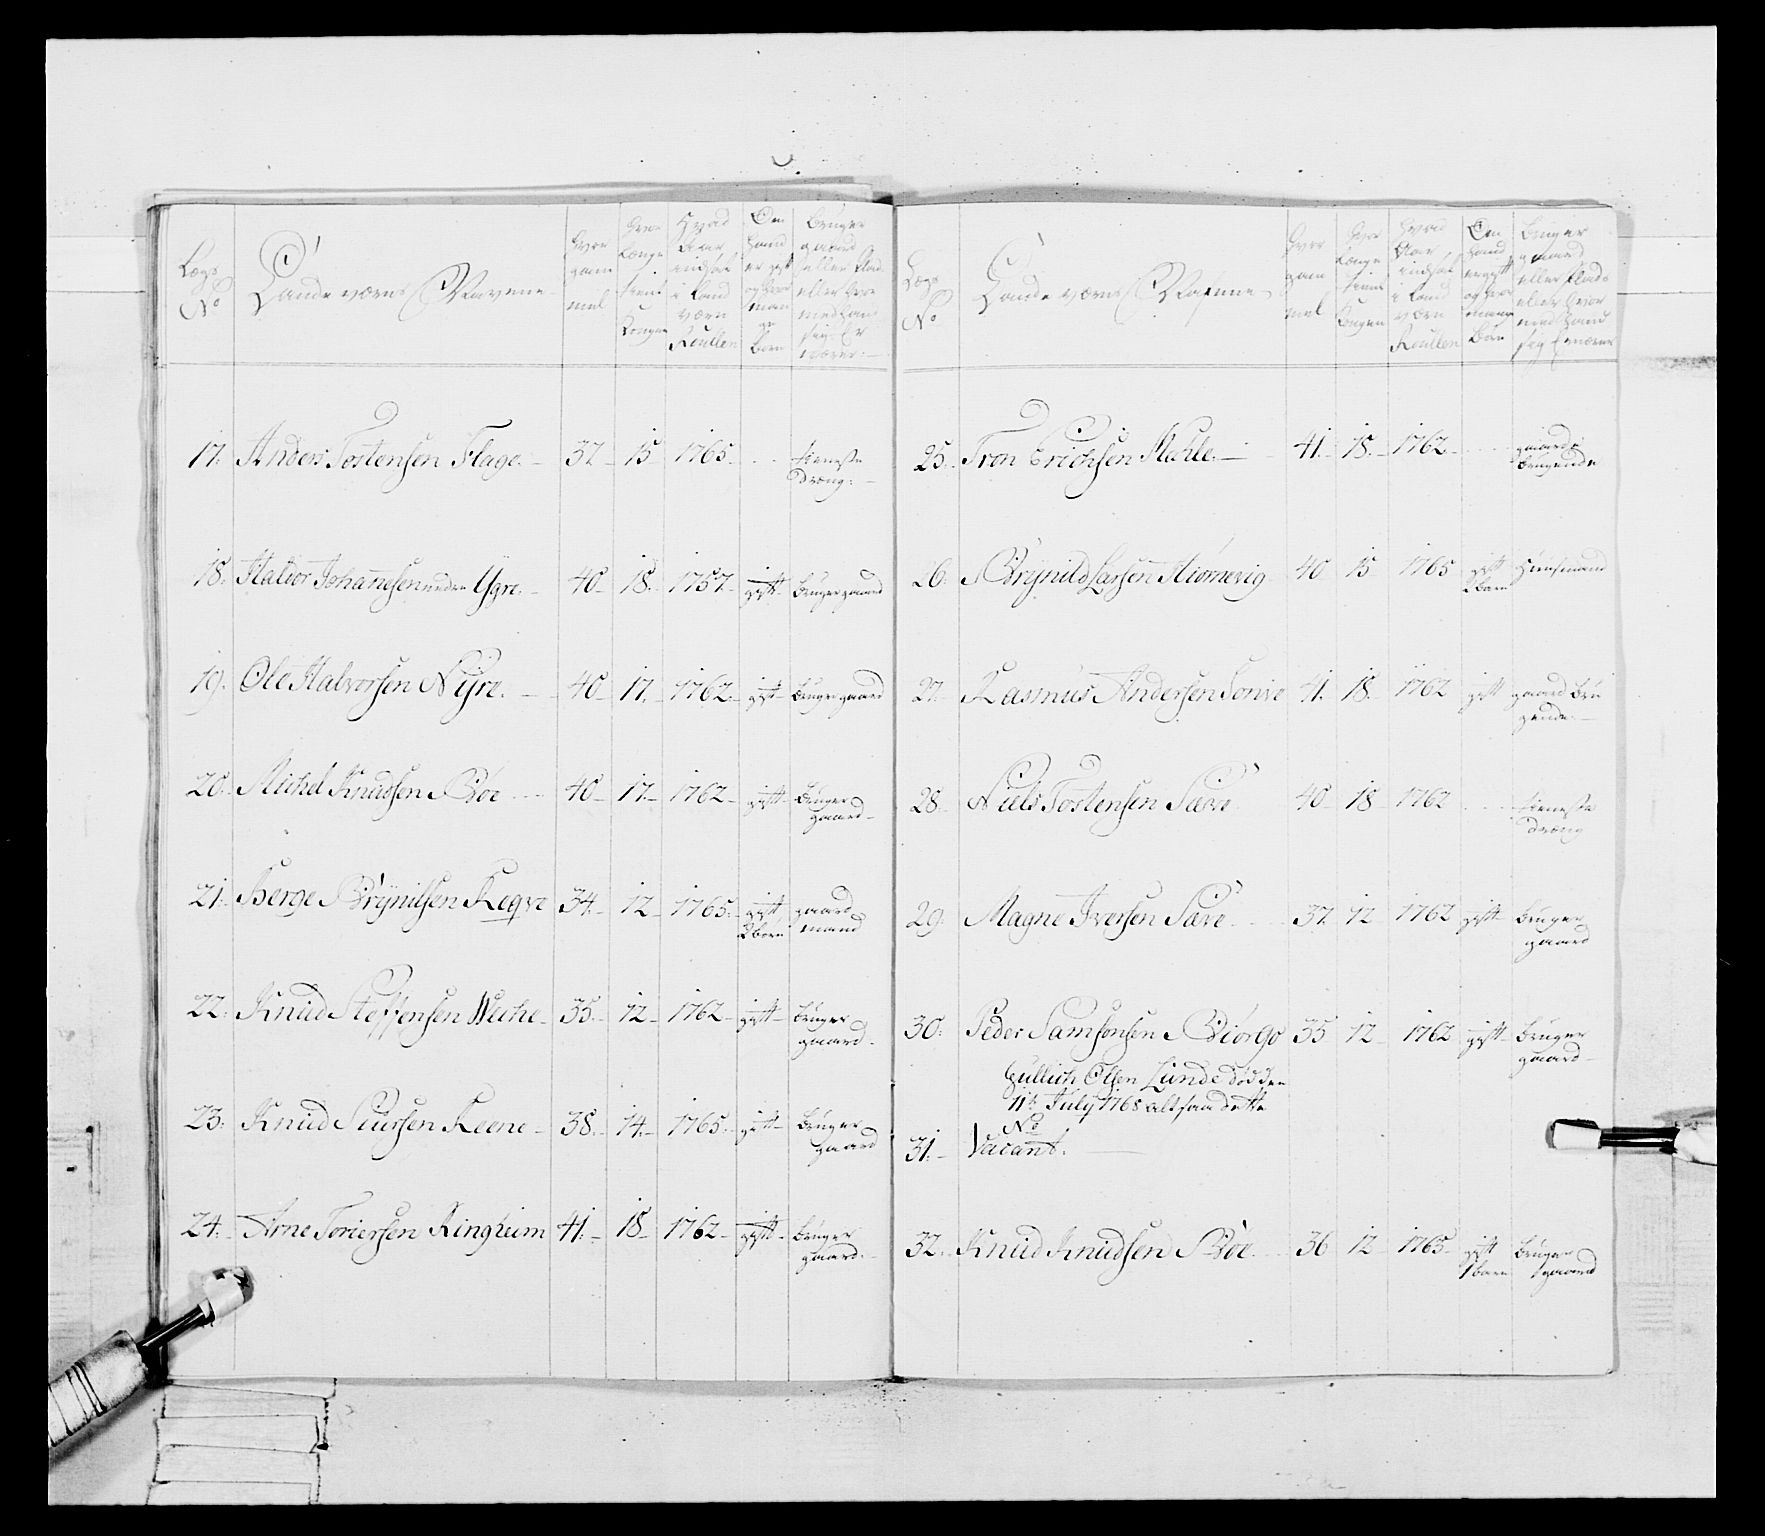 Lægs No
Landeværns Navene
Hvor gam mel
Hvor Længe tient Kongen
Hvad Aar indsat i Land værn Roullen
Om Hand er gift og hvor man ge Børn
Bruger gaard eller Plads eller hvor med Hand sig Er nærer:
17. Anders Tostensen Flage. 37 15 1765 tieneste dræng:
18. Haldor Johannesen neden Ygre. 40 18. 1757 gift Bruger gaard
19. Ole Halvorsen Nyre. 40 17. 1762 gift Bruger gaard
20. Michel Knudsen Bøe 40 17. 1762 gift Bruger gaard
21. Berge Brynilsen Reqve 34. 12 1765. gift 2 børn gaard mand
22. Knud Steffensen Weche 35. 12 1762 gift Bruger gaard
23. Knud Siursen Reene 38. 14. 1765. gift Bruger gaard
24. Arne Toriersen Ringheim 41. 18 1762 gift Bruger gaard.
Lægs No
Lande værns Nafnne
Hvor gam mel
Hvor Længe tient Kongen
Hvad Aar indsat i Land værn Roullen
Om Hand er gift og hvor mange Børn
Bruger gaard eller Plads eller hvor med Hand sig Ernærer
25. Tron Erichsen Mehle. 41. 18. 1762 gaard brugende
26. Brynild Larsen Miørnevig 40 15 1765 gift 2 børn Huusmand
27. Rasmus Andersen Sonve 41. 18. 1762 gift gaard bru gende.
28. Niels Tostensen Sæve 40 18 1762 tieneste dræng
29. Magne Iversen Sæve 37 12 1762 gift bruger gaard
30. Peder Samsonsen Biørgo 35 12 1762 gift bruger gaard
Gullich Olsen Lunde død den
11te July 1768 altsaa dette
No
31. Vacant.
32. Knud Knudsen Bøe. 36 12 1765 gift 1 barn bruger gaard